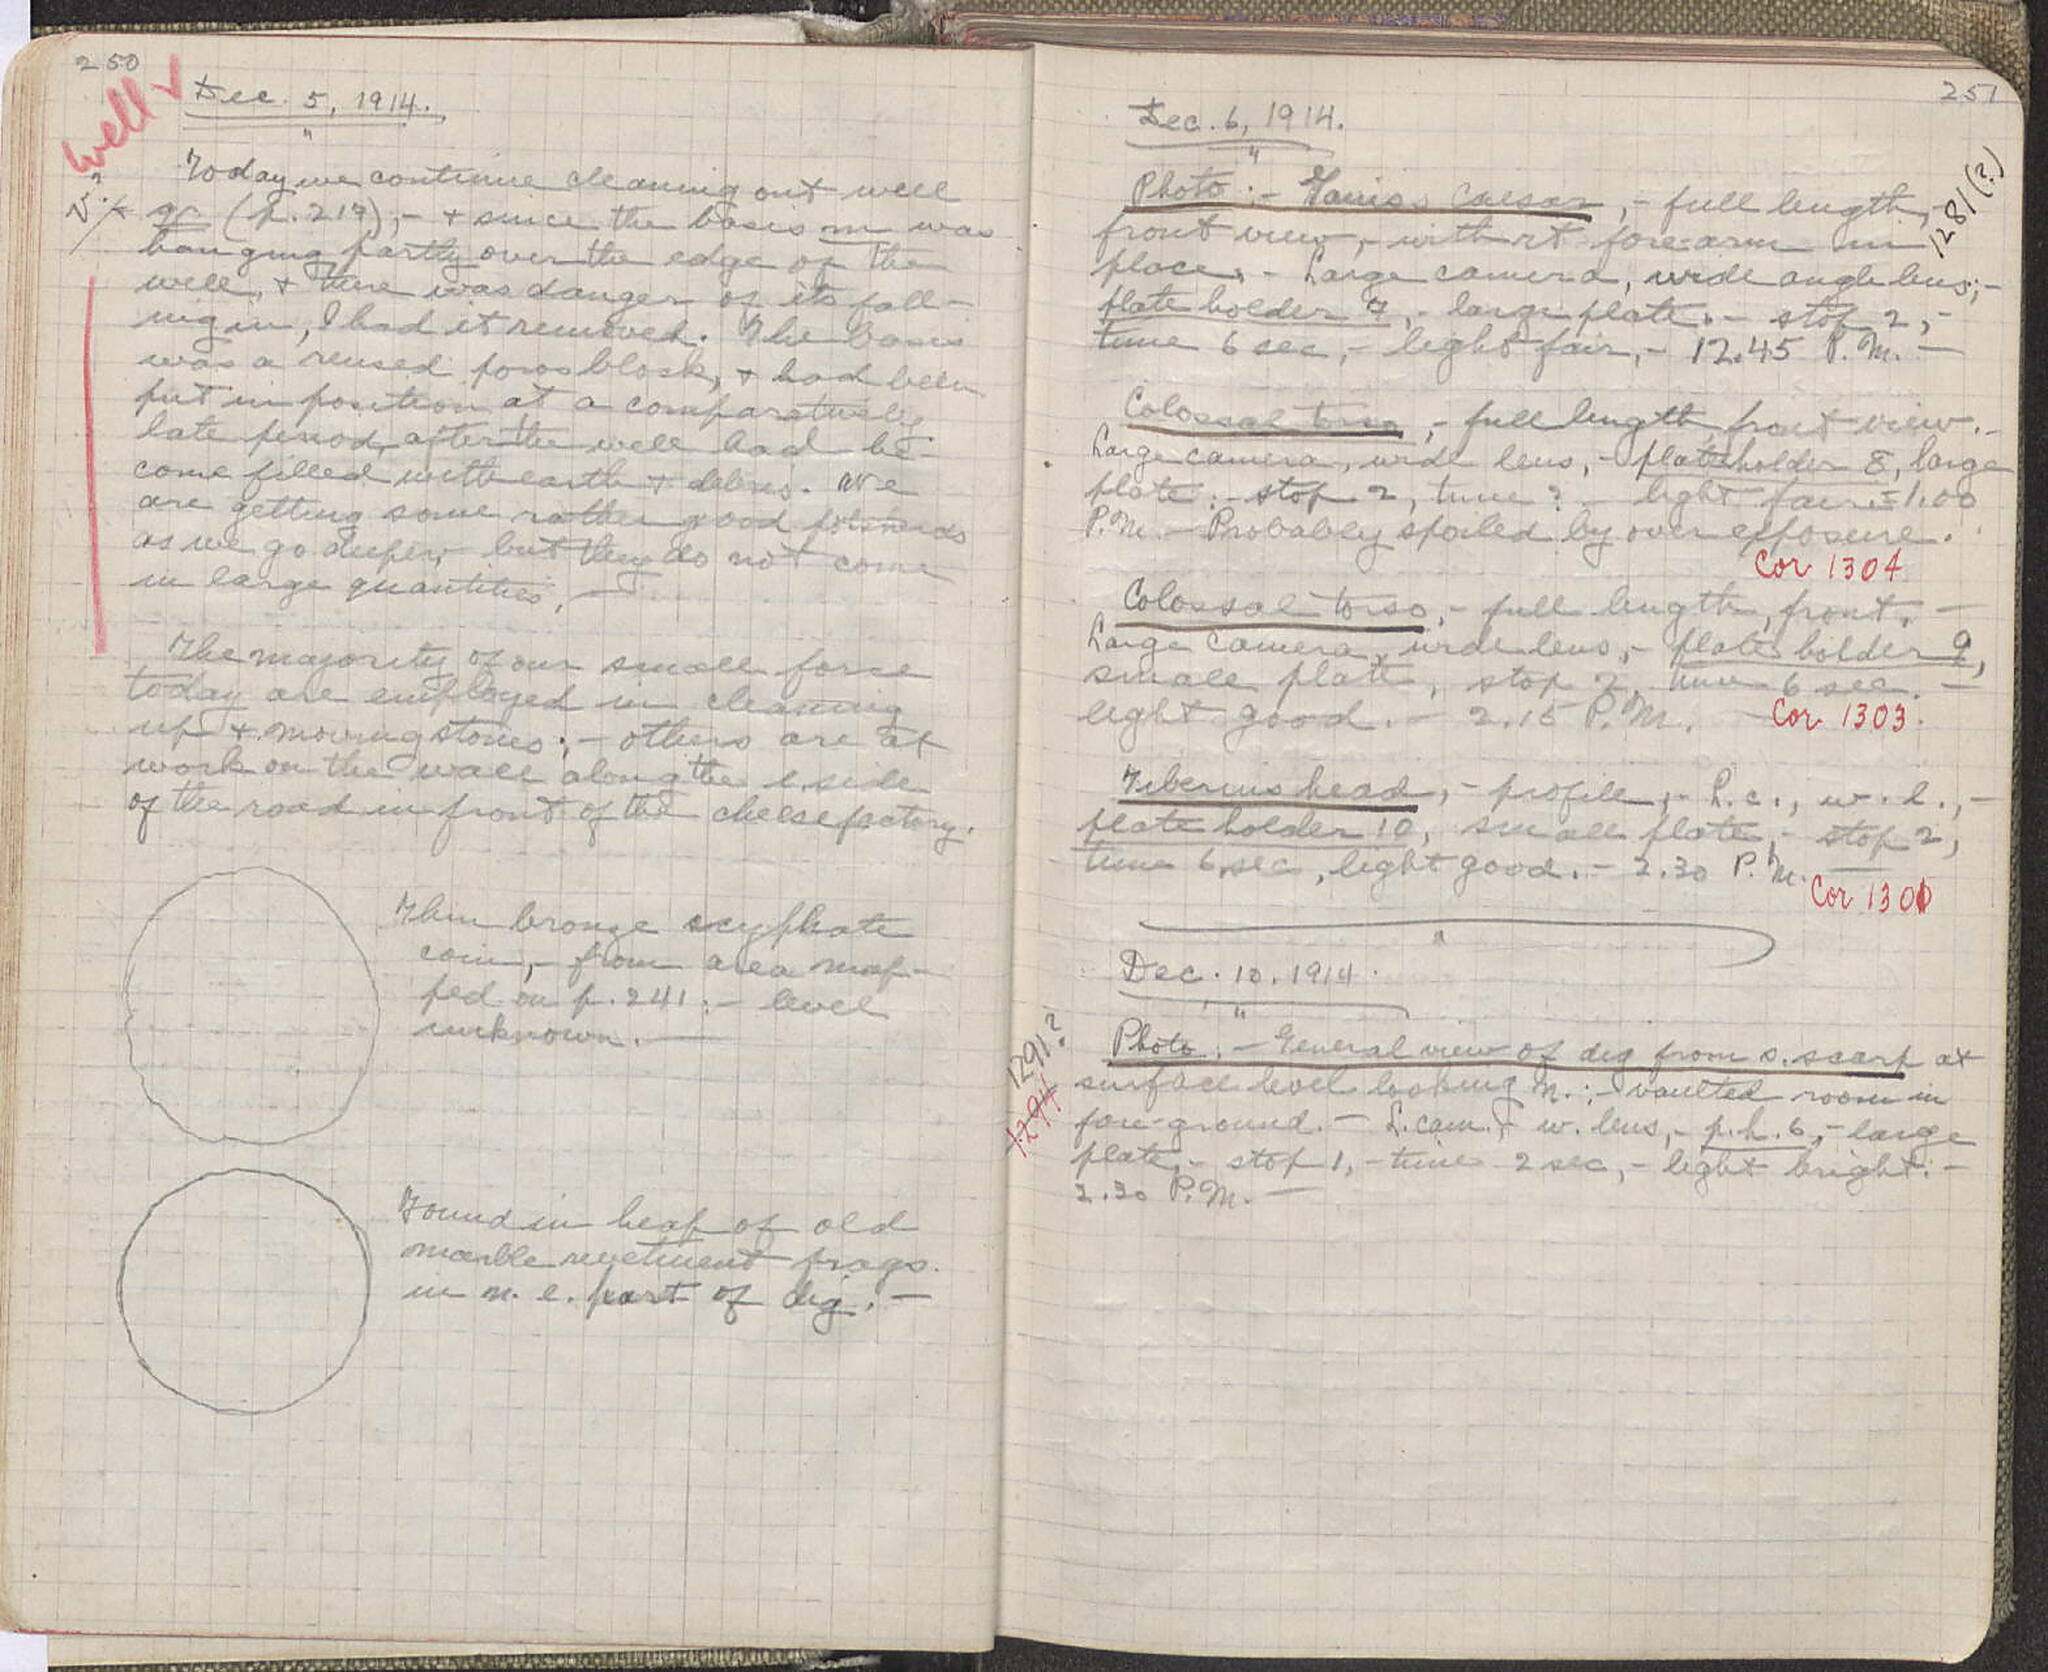 250
well ✓
Dec. 5, 1914.
Today we continue cleaning out well
(p. 217);- + since the basis m was
hanging partly over the edge of the
well, + there was danger of its fall-
ing in, I had it removed. The basis
was a reused poros block, + had been
put in position at a comparatively
late period, after the well had be-
come filled with earth + debris. We
are getting some rather good potsherds
as we go deeper, but they do not come
in large quantities. —
The majority of our small force
today are employed in cleaning
up + moving stones; - others are at
work on the wall along the e. side
of the road in front of the cheese factory.
Thin bronze scyphate
coin,- from area map-
ped on p. 241; - level
unknown. —
Found in heap of old
marble revetment frags.
in n. e. part of dig. —
251
Dec. 6, 1914.
1281 (?)
Photo:- Gaius Caesar,- full length,-
front view,- with rt forearm in
place. - Large camera, wide angle lens;-
plate holder 7,- large plate.- stop 2,-
time 6 sec,- light fair,- 12.45 P.M. —
Colossal torso,- full length front view.-
Large camera, wide lens,- plateholder 8, large
plate:- stop 2, time? - light fair - 1.00
P.M. - Probably spoiled by over exposure.
Cor 1304
Colossal torso,- full length, front. —
Large camera, wide lens,- plate holder 9,
small plate, stop 2, time 6 sec. —
light good. - 2.15 P.M. — Cor 1303.
Tiberius head,- profile,- L.c., w.l.,-
plate holder 10, small plate,- stop 2,
time 6 sec, light good.- 2.30 P.M. —
Cor 1301
Dec. 10. 1914.
1291?
1294
Photo:- General view of dig from s. scarp at
surface level looking n.;- vaulted room in
fore-ground. - L. cam., w. lens,- p.h. 6,- large
plate,- stop 1,- time 2 sec,- light bright.-
2.30 P.M. —